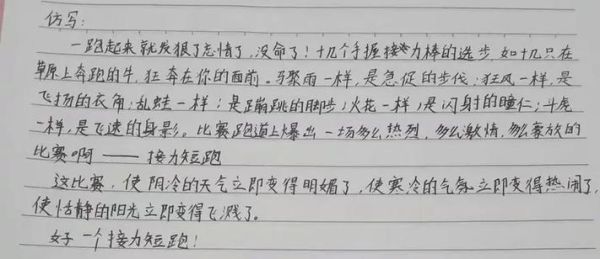 仿写：
一跑起来就发狠了忘情了，没命了！十几个手握接力棒的选步，如十几只在
草原上奔跑的牛，狂奔在你的面前。骤雨一样，是急促的步伐；狂风一样，是
飞扬的衣角；乱蛙一样，是蹦跳的脚步；火花一样，是闪射的瞳仁；斗虎
一样，是飞速的身影。比赛跑道上爆出一场多么热烈，多么激情，多么豪放的
比赛啊——接力短跑
这比赛，使阴冷的天气立即变得明媚了，使寒冷的气氛立即变得热闹了，
使恬静的阳光立即变得飞溅了。
好一个接力短跑！